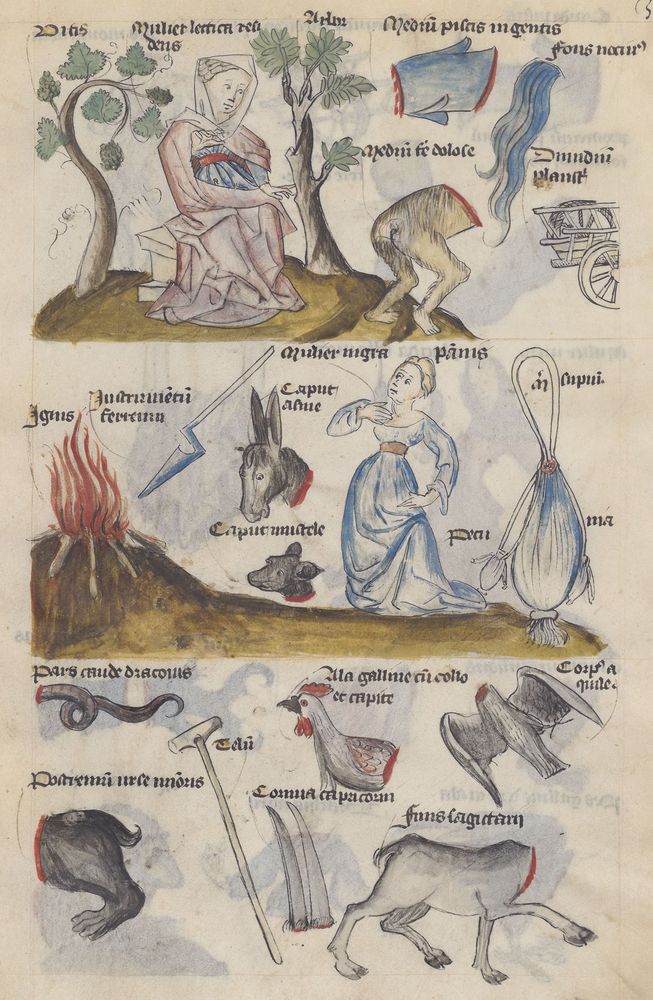 Vitis
Mulier lectica resi
dens
Arbor
Mediũ piscis ingentis
fons nectur
Mediũ fe dolose
Dimidiũ
plaustr
Mulier nigra pãnis
Ignis
Instrumentũ
ferreum
Caput
asine
M̃
supiũ
Caput mustele
Pecu
nia
Pars caude draconis
Ala galline cũ collo
et capite
Corpꝰ a
quile
Telũ
Postremũ urse minoris
Cornua capricorni
finis sagictarii